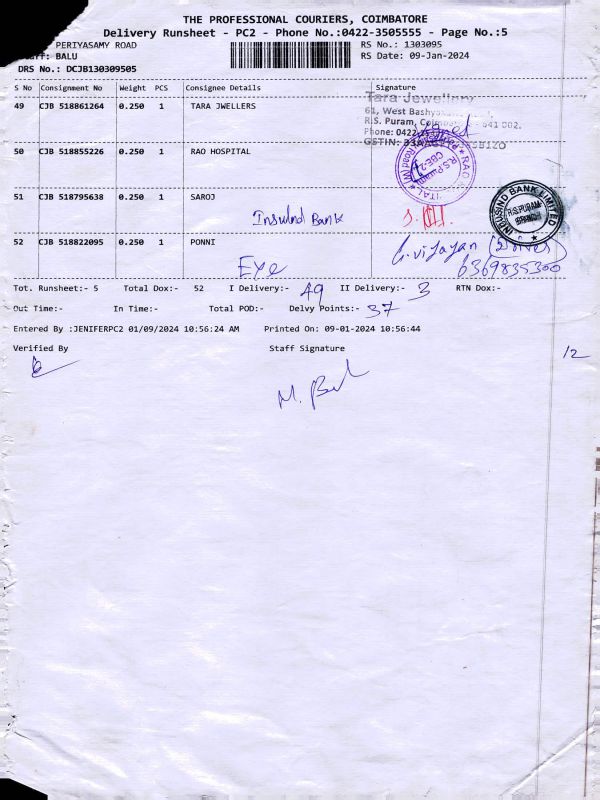 THE PROFESSIONAL COURIERS, COIMBATORE
Delivery Runsheet - PC2 - Phone No.:0422-3505555 - Page No.:5
PERIYASAMY ROAD
RS No.: 1303095
: BALU
RS Date: 09-Jan-2024
DRS No.: DCJB130309505
S No Consignment No Weight PCS Consignee Details Signature
49 CJB 518861264 0.250 1 TARA JWELLERS
Tara Jewellery
61, West
R.S. Puram, - 641 002.
Phone: 0422-
GSTIN:
50 CJB 518855226 0.250 1 RAO HOSPITAL
RAO R.S. Puram CBE-2
51 CJB 518795638 0.250 1 SAROJ
Insulnd Bank
INDUSIND BANK LIMITED R.S.PURAM BRANCH
52 CJB 518822095 0.250 1 PONNI
Eye
G. vijayan
6369835300
Tot. Runsheet:- 5 Total Dox:- 52 I Delivery:- 49 II Delivery:- 3 RTN Dox:-
Out Time:- In Time:- Total POD:- Delvy Points:- 37
Entered By :JENIFERPC2 01/09/2024 10:56:24 AM Printed On: 09-01-2024 10:56:44
Verified By Staff Signature
12